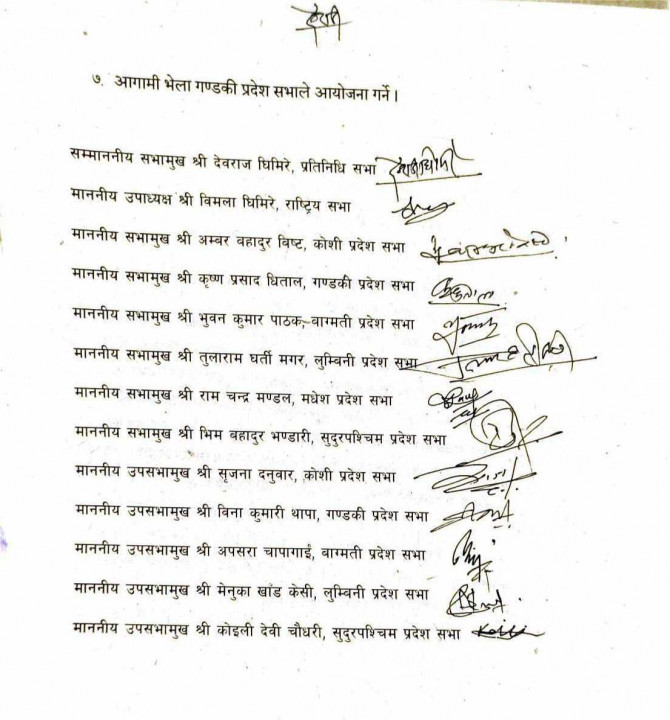 ७. आगामी भेला गण्डकी प्रदेश सभाले आयोजना गर्ने।
सम्माननीय सभामुख श्री देवराज घिमिरे, प्रतिनिधि सभा
माननीय उपाध्यक्ष श्री विमला घिमिरे, राष्ट्रिय सभा
माननीय सभामुख श्री अम्बर बहादुर विष्ट, कोशी प्रदेश सभा
माननीय सभामुख श्री कृष्ण प्रसाद धिताल, गण्डकी प्रदेश सभा
माननीय सभामुख श्री भुवन कुमार पाठक, बाग्मती प्रदेश सभा
माननीय सभामुख श्री तुलाराम घर्ती मगर, लुम्बिनी प्रदेश सभा
माननीय सभामुख श्री राम चन्द्र मण्डल, मधेश प्रदेश सभा
माननीय सभामुख श्री भिम बहादुर भण्डारी, सुदुरपश्चिम प्रदेश सभा
माननीय उपसभामुख श्री सृजना दनुवार, कोशी प्रदेश सभा
माननीय उपसभामुख श्री विना कुमारी थापा, गण्डकी प्रदेश सभा
माननीय उपसभामुख श्री अपसरा चापागाई, बाग्मती प्रदेश सभा
माननीय उपसभामुख श्री मेनुका खांड केसी, लुम्बिनी प्रदेश सभा
माननीय उपसभामुख श्री कोइली देवी चौधरी, सुदुरपश्चिम प्रदेश सभा